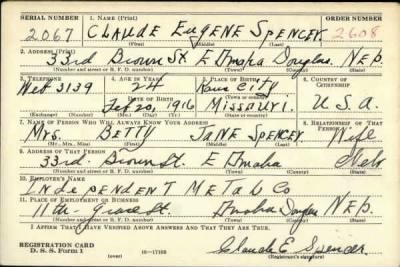 SERIAL NUMBER 1. NAME (Print) ORDER NUMBER
2067 CLAUDE EUGENE SPENCER 2608
(First) (Middle) (Last)
2. ADDRESS (Print)
33rd Brown St. E Omaha Douglas Neb.
(Number and street or R. F. D. number) (Town) (County) (State)
3. TELEPHONE 4. AGE IN YEARS 5. PLACE OF BIRTH 6. COUNTRY OF CITIZENSHIP
3139 24
DATE OF BIRTH (Town or county)
Feb 20, 1916 Missouri. U.S.A.
(Exchange) (Number) (Mo.) (Day) (Yr.) (State or country)
7. NAME OF PERSON WHO WILL ALWAYS KNOW YOUR ADDRESS 8. RELATIONSHIP OF THAT PERSON
Mrs. BETTY JANE SPENCER Wife
(Mr., Mrs., Miss) (First) (Middle) (Last)
9. ADDRESS OF THAT PERSON
33rd. Brown St. E Omaha Neb
(Number and street or R. F. D. number) (Town) (County) (State)
10. EMPLOYER'S NAME
INdEPENdENT METAL Co
11. PLACE OF EMPLOYMENT OR BUSINESS
11th Grace St. Omaha Douglas NEB.
(Number and street or R. F. D. number) (Town) (County) (State)
I AFFIRM THAT I HAVE VERIFIED ABOVE ANSWERS AND THAT THEY ARE TRUE.
REGISTRATION CARD
D. S. S. Form 1 (over) Claude E. Spencer
(Registrant's signature)